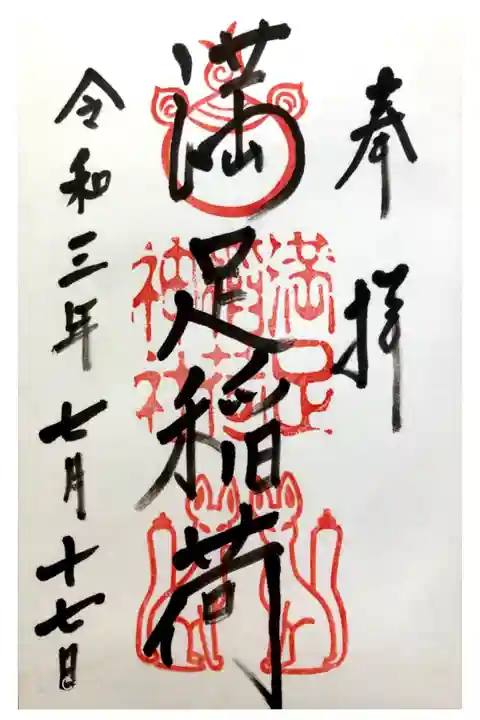 奉拝
満足稲荷
満足
稲荷
神社
令和三年七月十七日